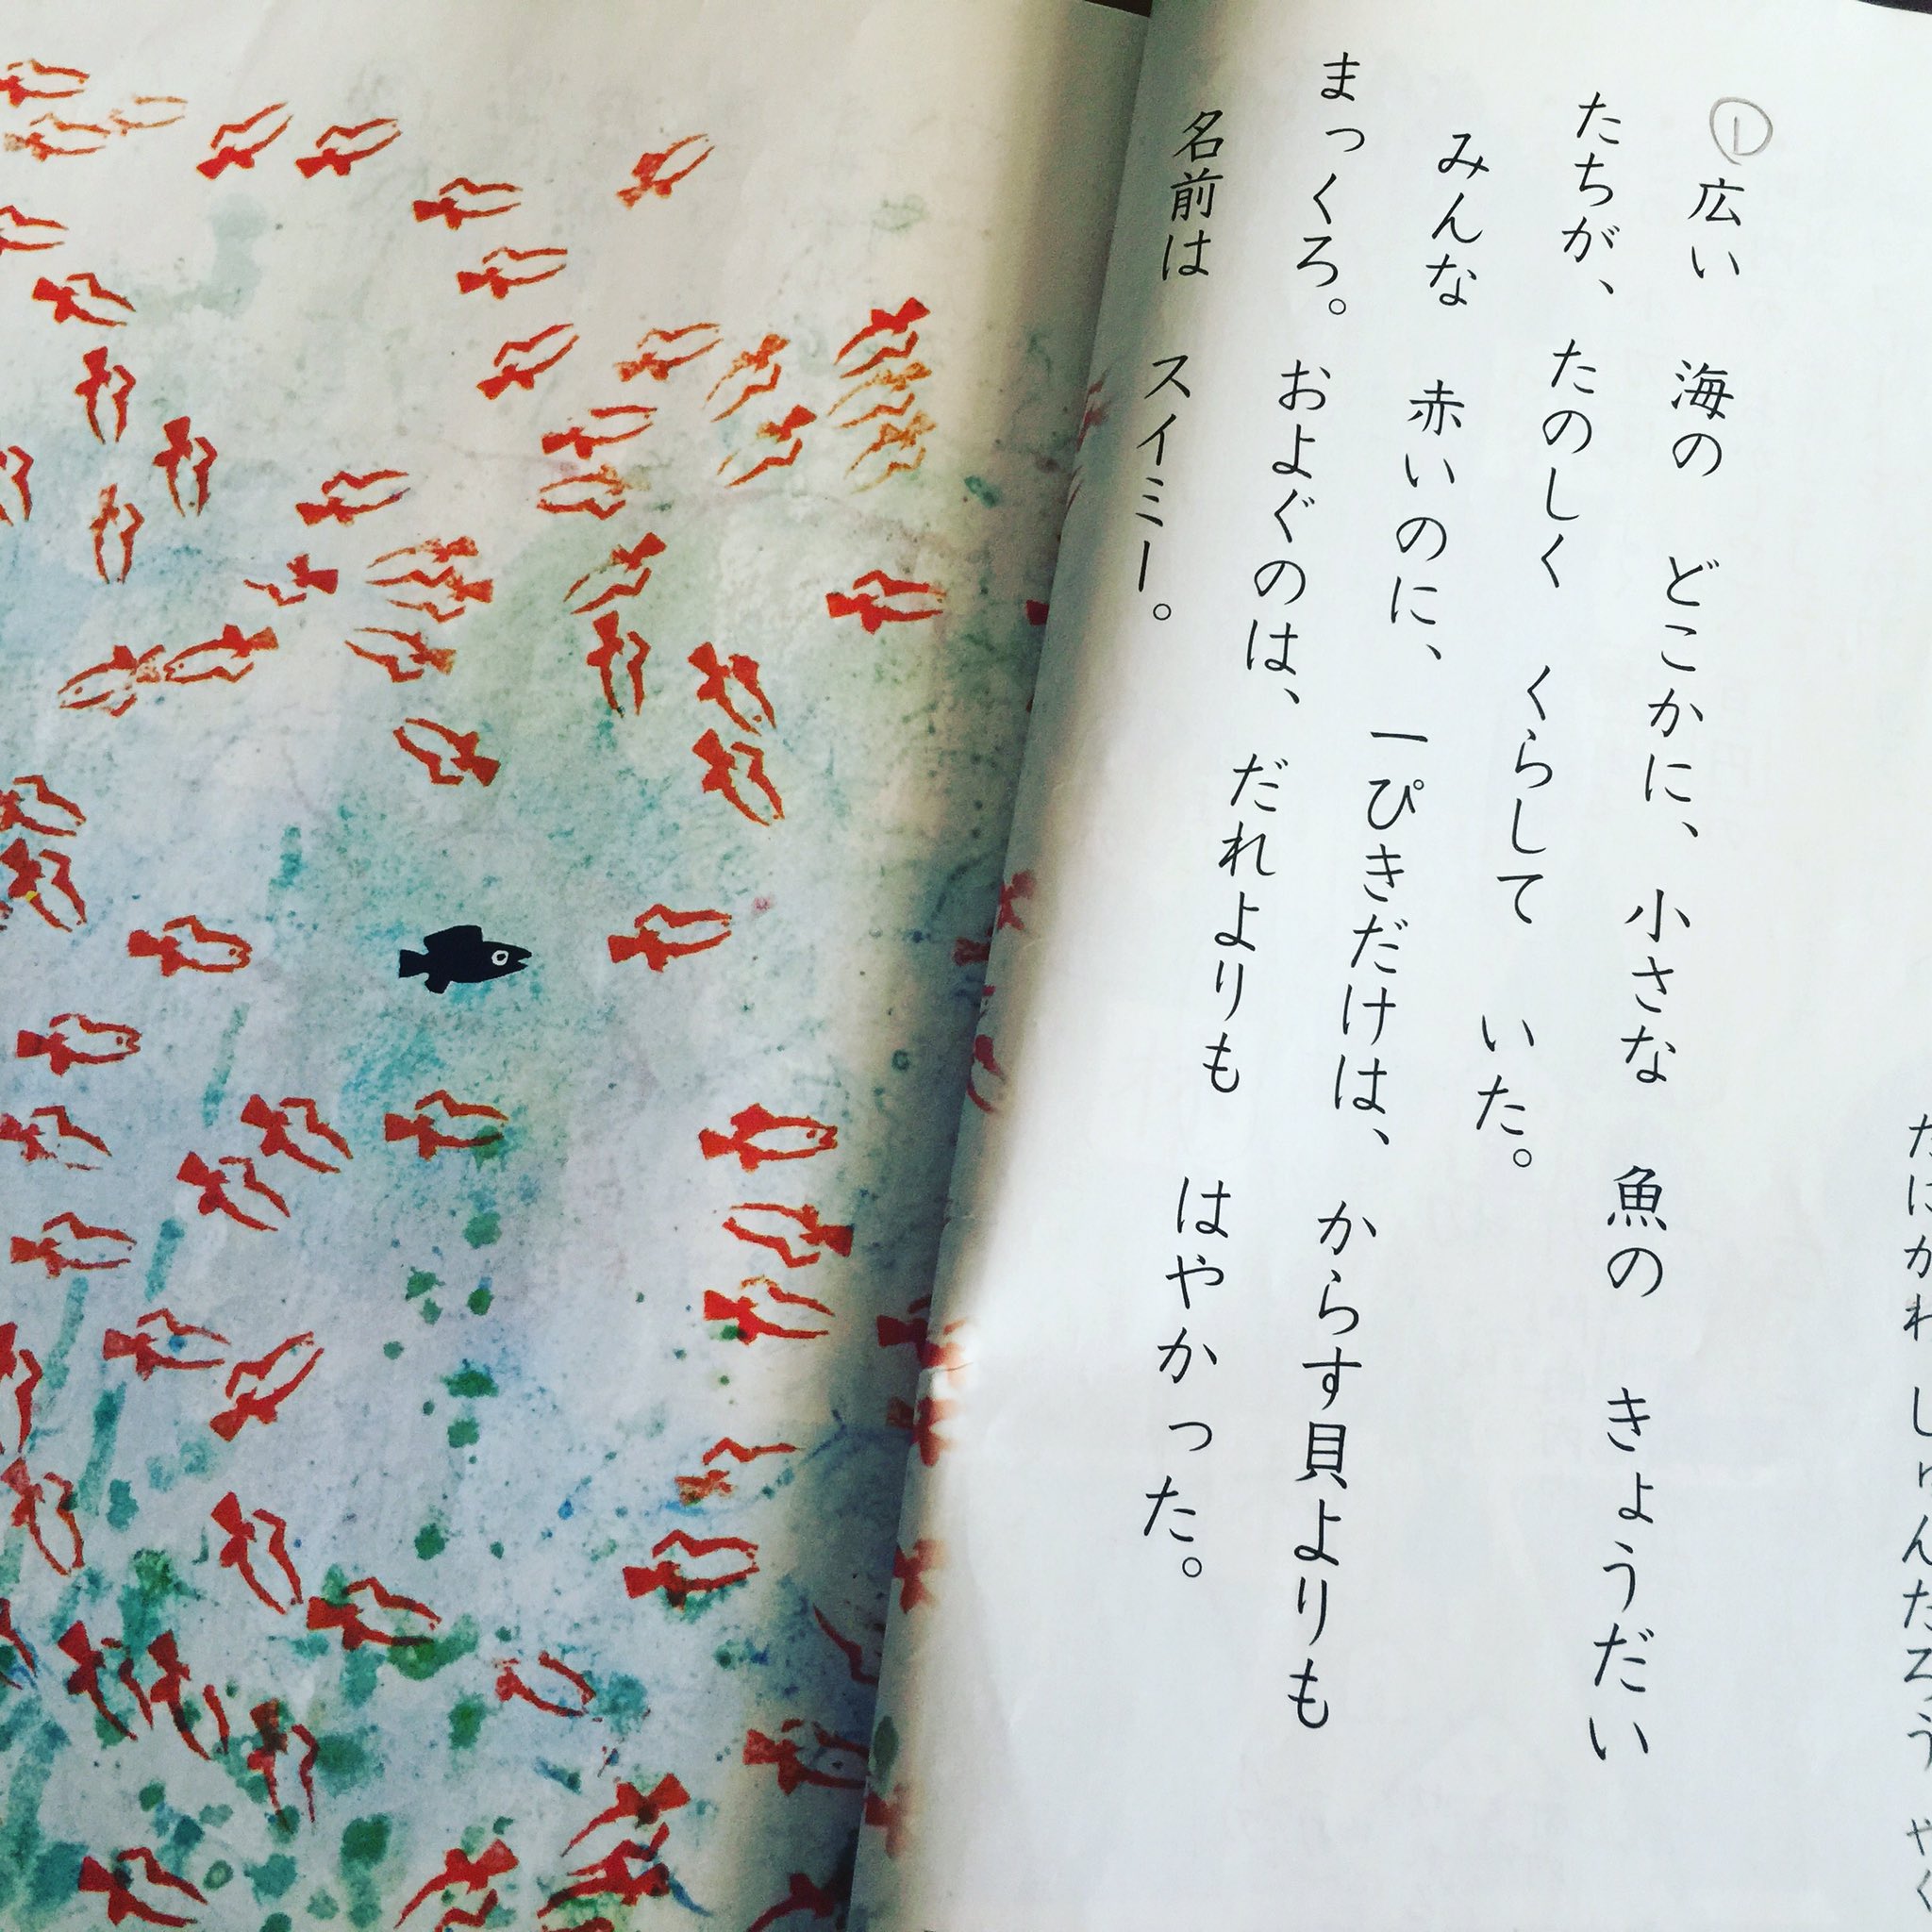 ①広い　海の　どこかに、小さな　魚の　きょうだい
たちが、たのしく　くらして　いた。
みんな　赤いのに、一ぴきだけは、からす貝よりも
まっくろ。およぐのは、だれよりも　はやかった。
名前は　スイミー。